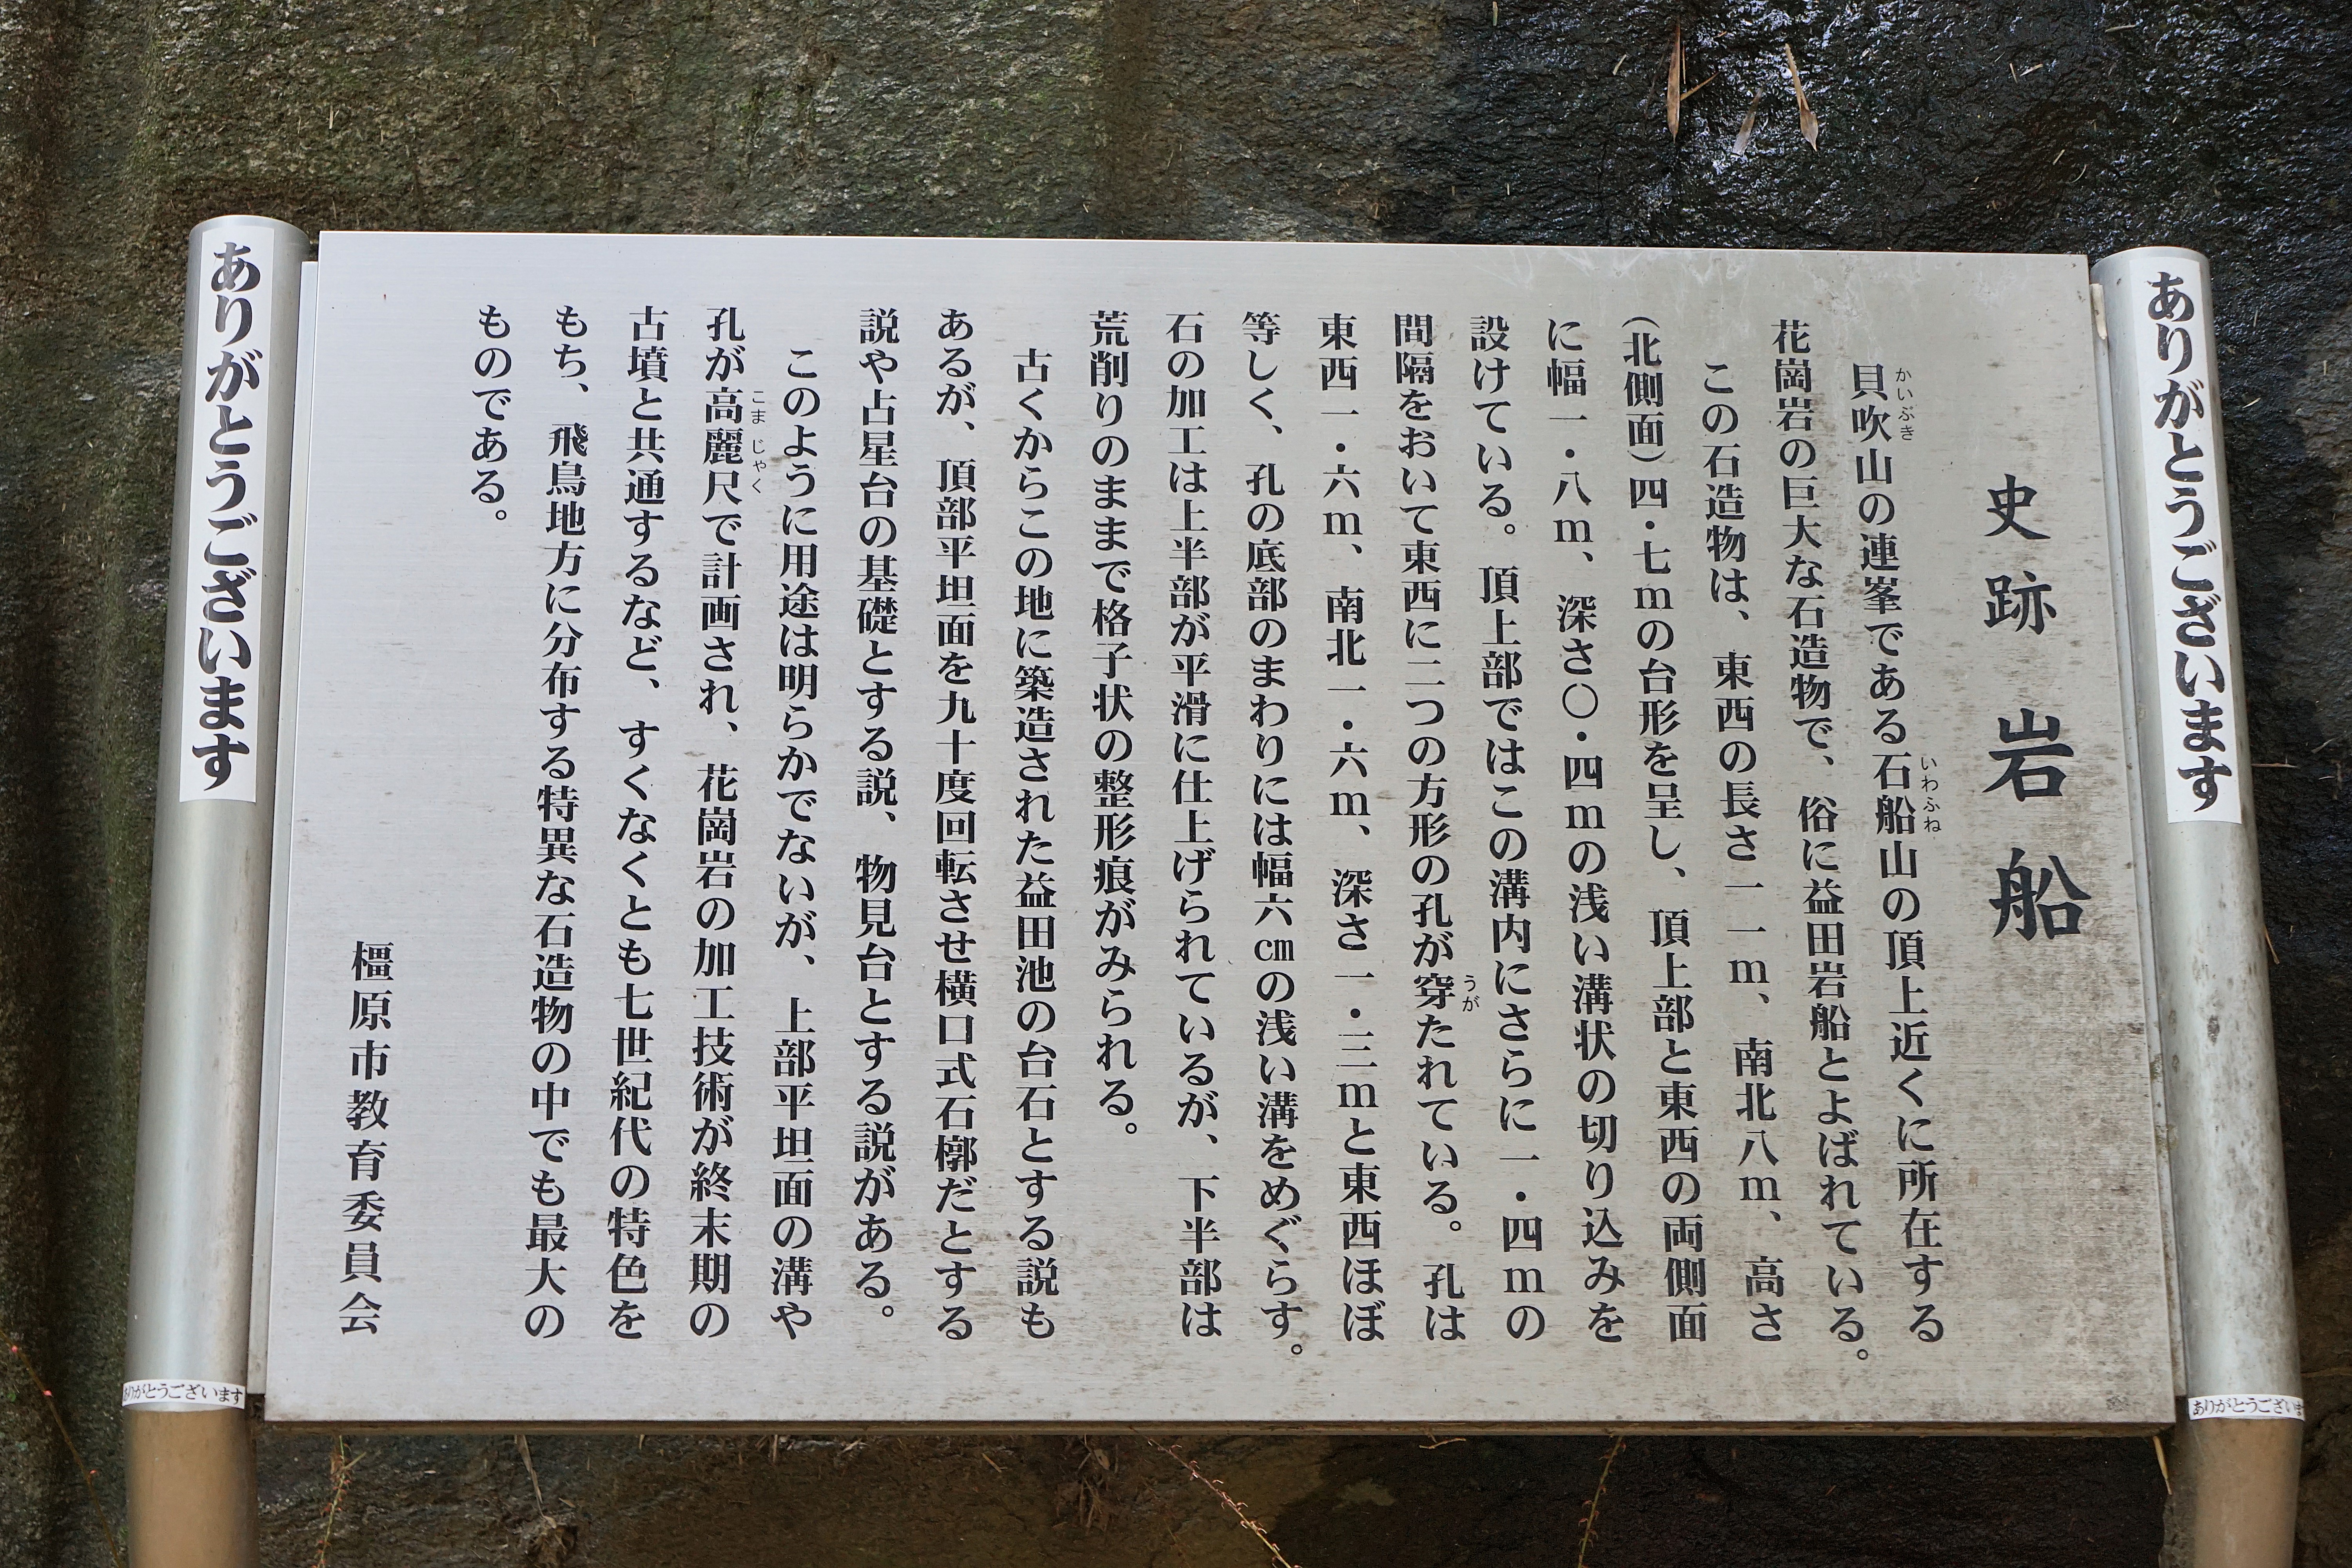 史跡 岩船
貝吹山の連峯である石船山の頂上近くに所在する
かいぶき
いわふね
花崗岩の巨大な石造物で、俗に益田岩船とよばれている。
この石造物は、東西の長さ一一m、南北八m、高さ
(北側面)四・七mの台形を呈し、頂上部と東西の両側面
に幅一・八m、深さ〇・四mの浅い溝状の切り込みを
設けている。頂上部ではこの溝内にさらに一・四mの
間隔をおいて東西に二つの方形の孔が穿たれている。孔は
うが
東西一・六m、南北一・六m、深さ一・三mと東西ほぼ
等しく、孔の底部のまわりには幅六cmの浅い溝をめぐらす。
石の加工は上半部が平滑に仕上げられているが、下半部は
荒削りのままで格子状の整形痕がみられる。
古くからこの地に築造された益田池の台石とする説も
あるが、頂部平坦面を九十度回転させ横口式石槨だとする
説や占星台の基礎とする説、物見台とする説がある。
このように用途は明らかでないが、上部平坦面の溝や
孔が高麗尺で計画され、花崗岩の加工技術が終末期の
こま じゃく
古墳と共通するなど、すくなくとも七世紀代の特色を
もち、飛鳥地方に分布する特異な石造物の中でも最大の
ものである。
橿原市教育委員会
ありがとうございます
ありがとうございます
ありがとうございます
ありがとうございま